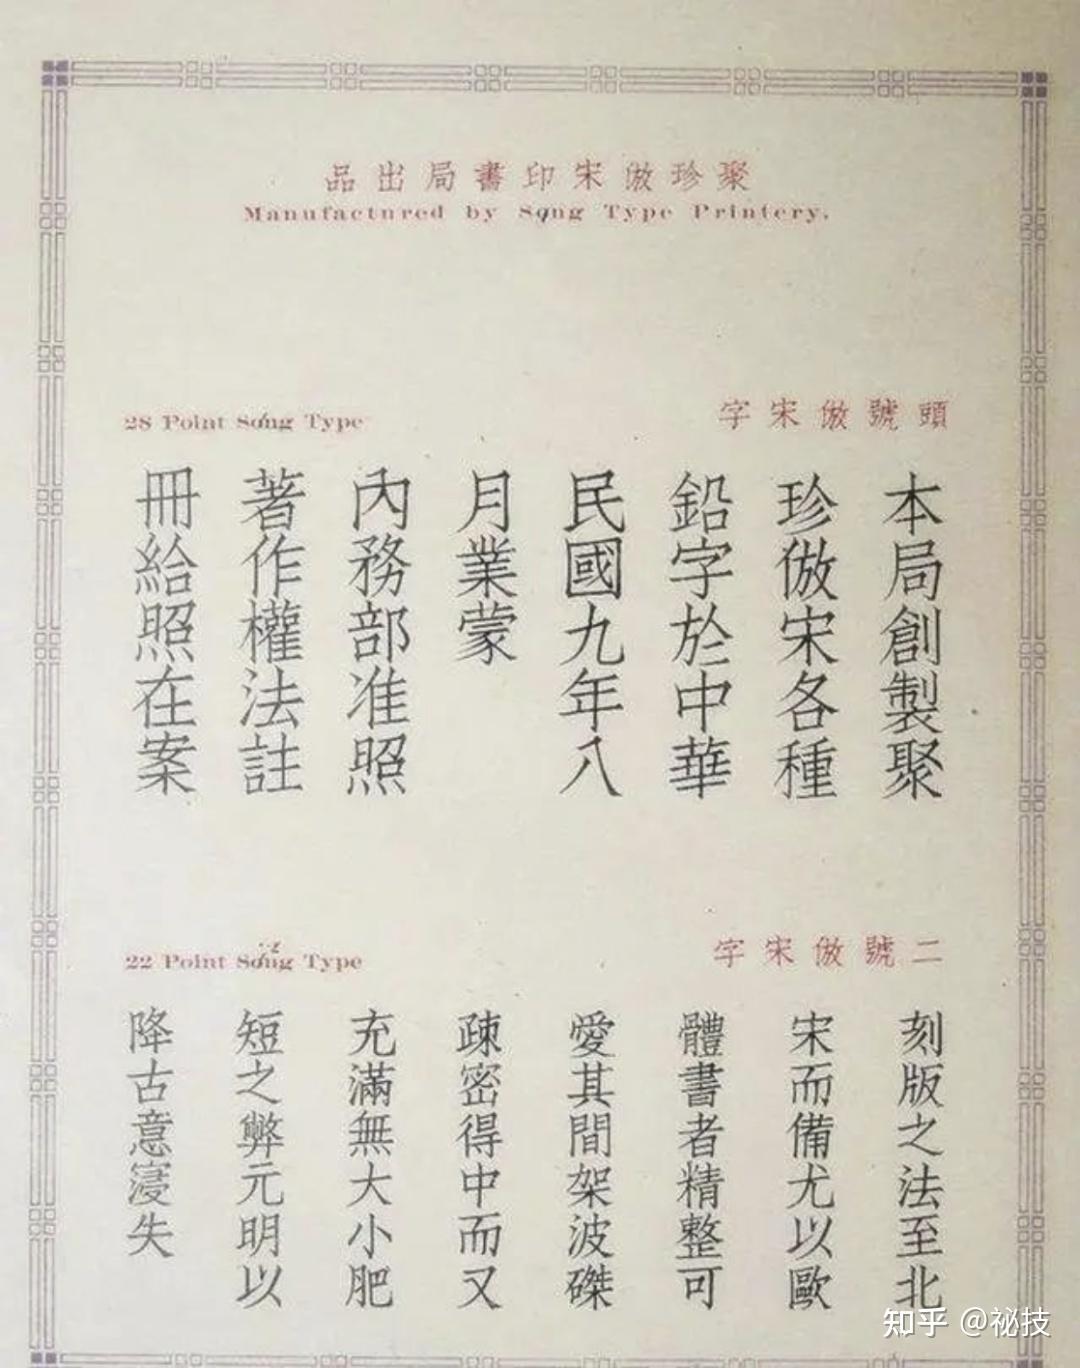 聚珍倣宋印書局出品
Manufactured by Song Type Printery.
頭號倣宋字
28 Point Song Type
本局創製聚
珍倣宋各種
鉛字於中華
民國九年八
月業蒙
內務部准照
著作權法註
冊給照在案
二號倣宋字
22 Point Song Type
刻版之法至北
宋而備尤以歐
體書者精整可
愛其間架波磔
疎密得中而又
充滿無大小肥
短之弊元明以
降古意寖失
知乎 @祕技